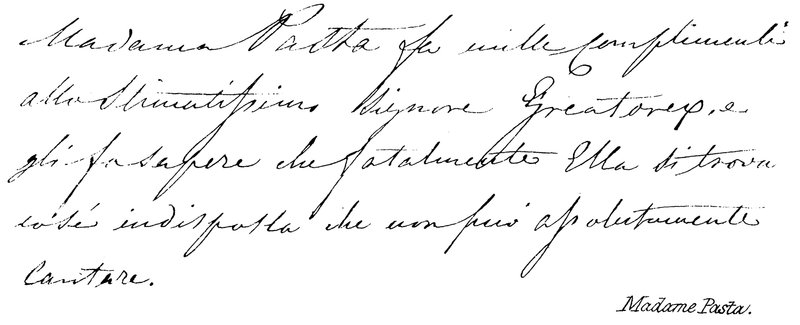 Madama Pasta fa mille Complimenti
allo Stimatissimo Signore Greatorex, e
gli fa sapere che fatalmente Ella si trova
cosí indisposta che non può assolutamente
Cantare.
Madame Pasta.